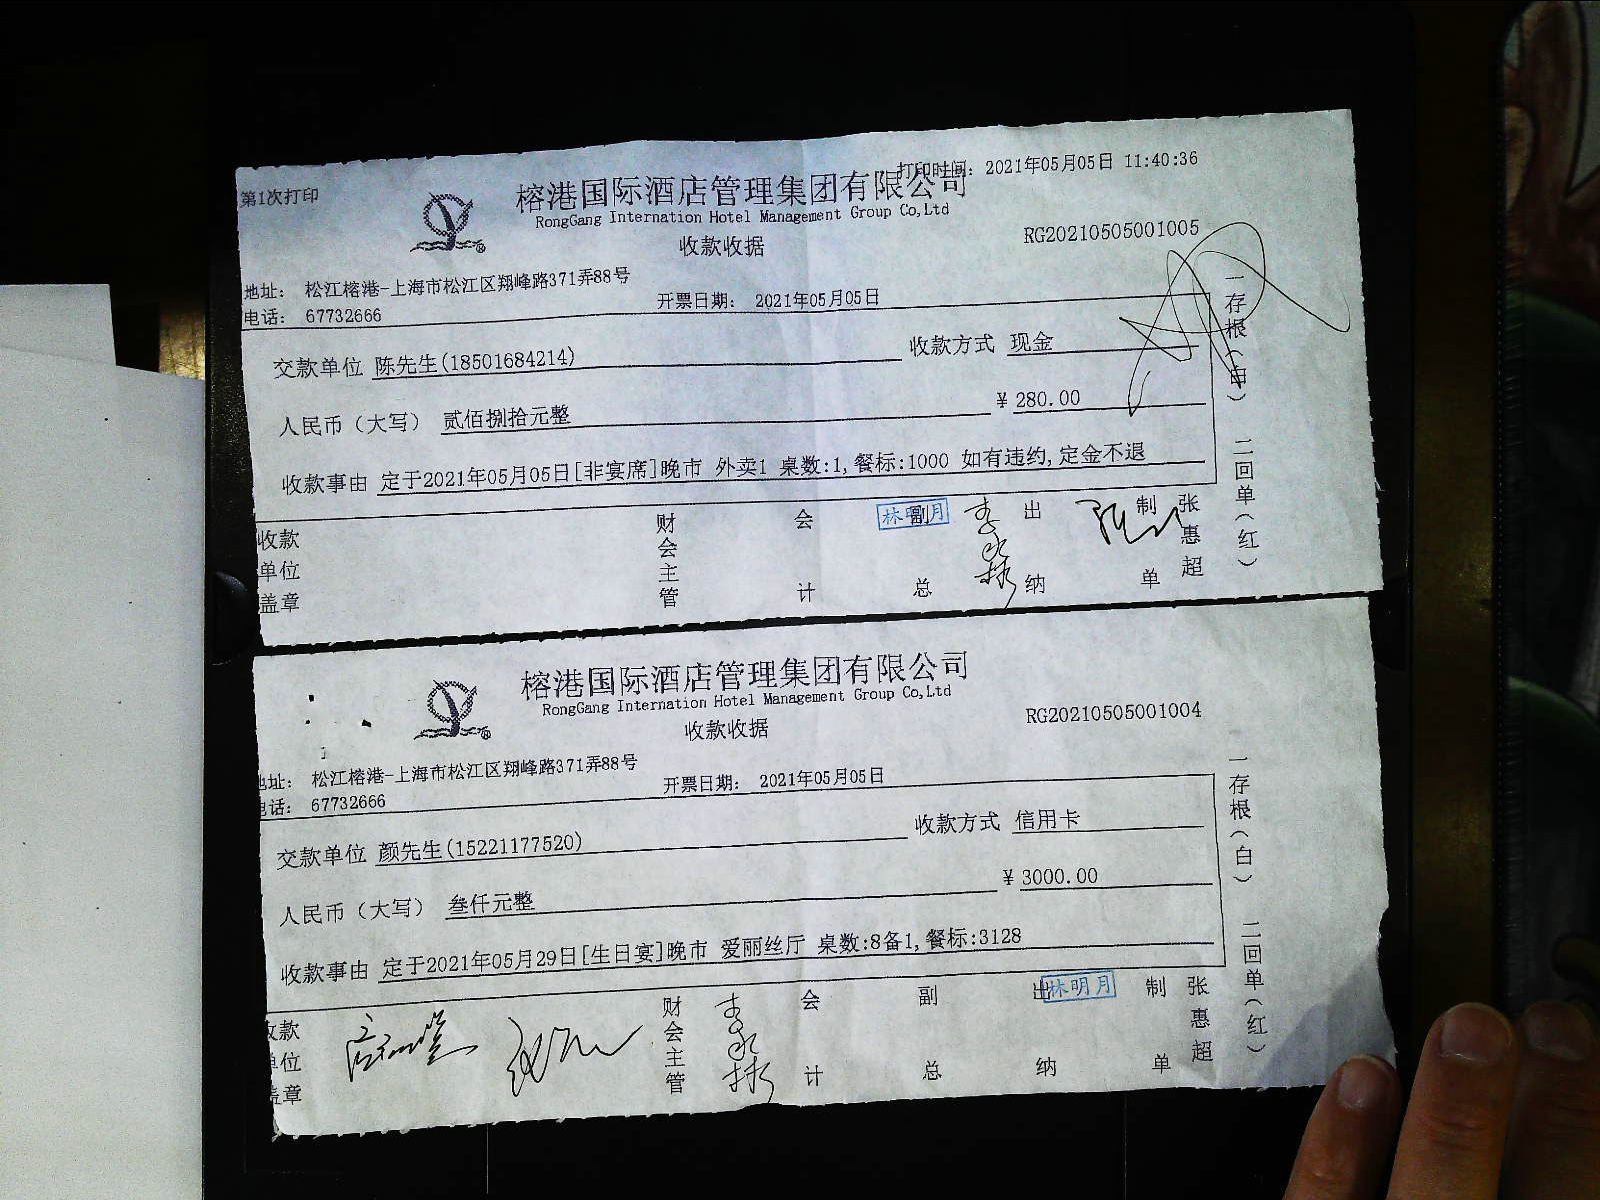 第1次打印
打印时间: 2021年05月05日 11:40:36
榕港国际酒店管理集团有限公司
RongGang Internation Hotel Management Group Co,Ltd
收款收据
RG20210505001005
地址: 松江榕港-上海市松江区翔峰路371弄88号
电话: 67732666
开票日期: 2021年05月05日
交款单位 陈先生(18501684214)
收款方式 现金
人民币（大写） 贰佰捌拾元整
¥ 280.00
收款事由 定于2021年05月05日[非宴席]晚市 外卖1 桌数:1,餐标:1000 如有违约,定金不退
收款单位盖章
财会主管
会计
副总
林明月
出纳
制单
张惠超
一存根（白） 二回单（红）
榕港国际酒店管理集团有限公司
RongGang Internation Hotel Management Group Co,Ltd
收款收据
RG20210505001004
地址: 松江榕港-上海市松江区翔峰路371弄88号
电话: 67732666
开票日期: 2021年05月05日
交款单位 颜先生(15221177520)
收款方式 信用卡
人民币（大写） 叁仟元整
¥ 3000.00
收款事由 定于2021年05月29日[生日宴]晚市 爱丽丝厅 桌数:8备1,餐标:3128
收款单位盖章
财会主管
会计
副总
出纳
林明月
制单
张惠超
一存根（白） 二回单（红）